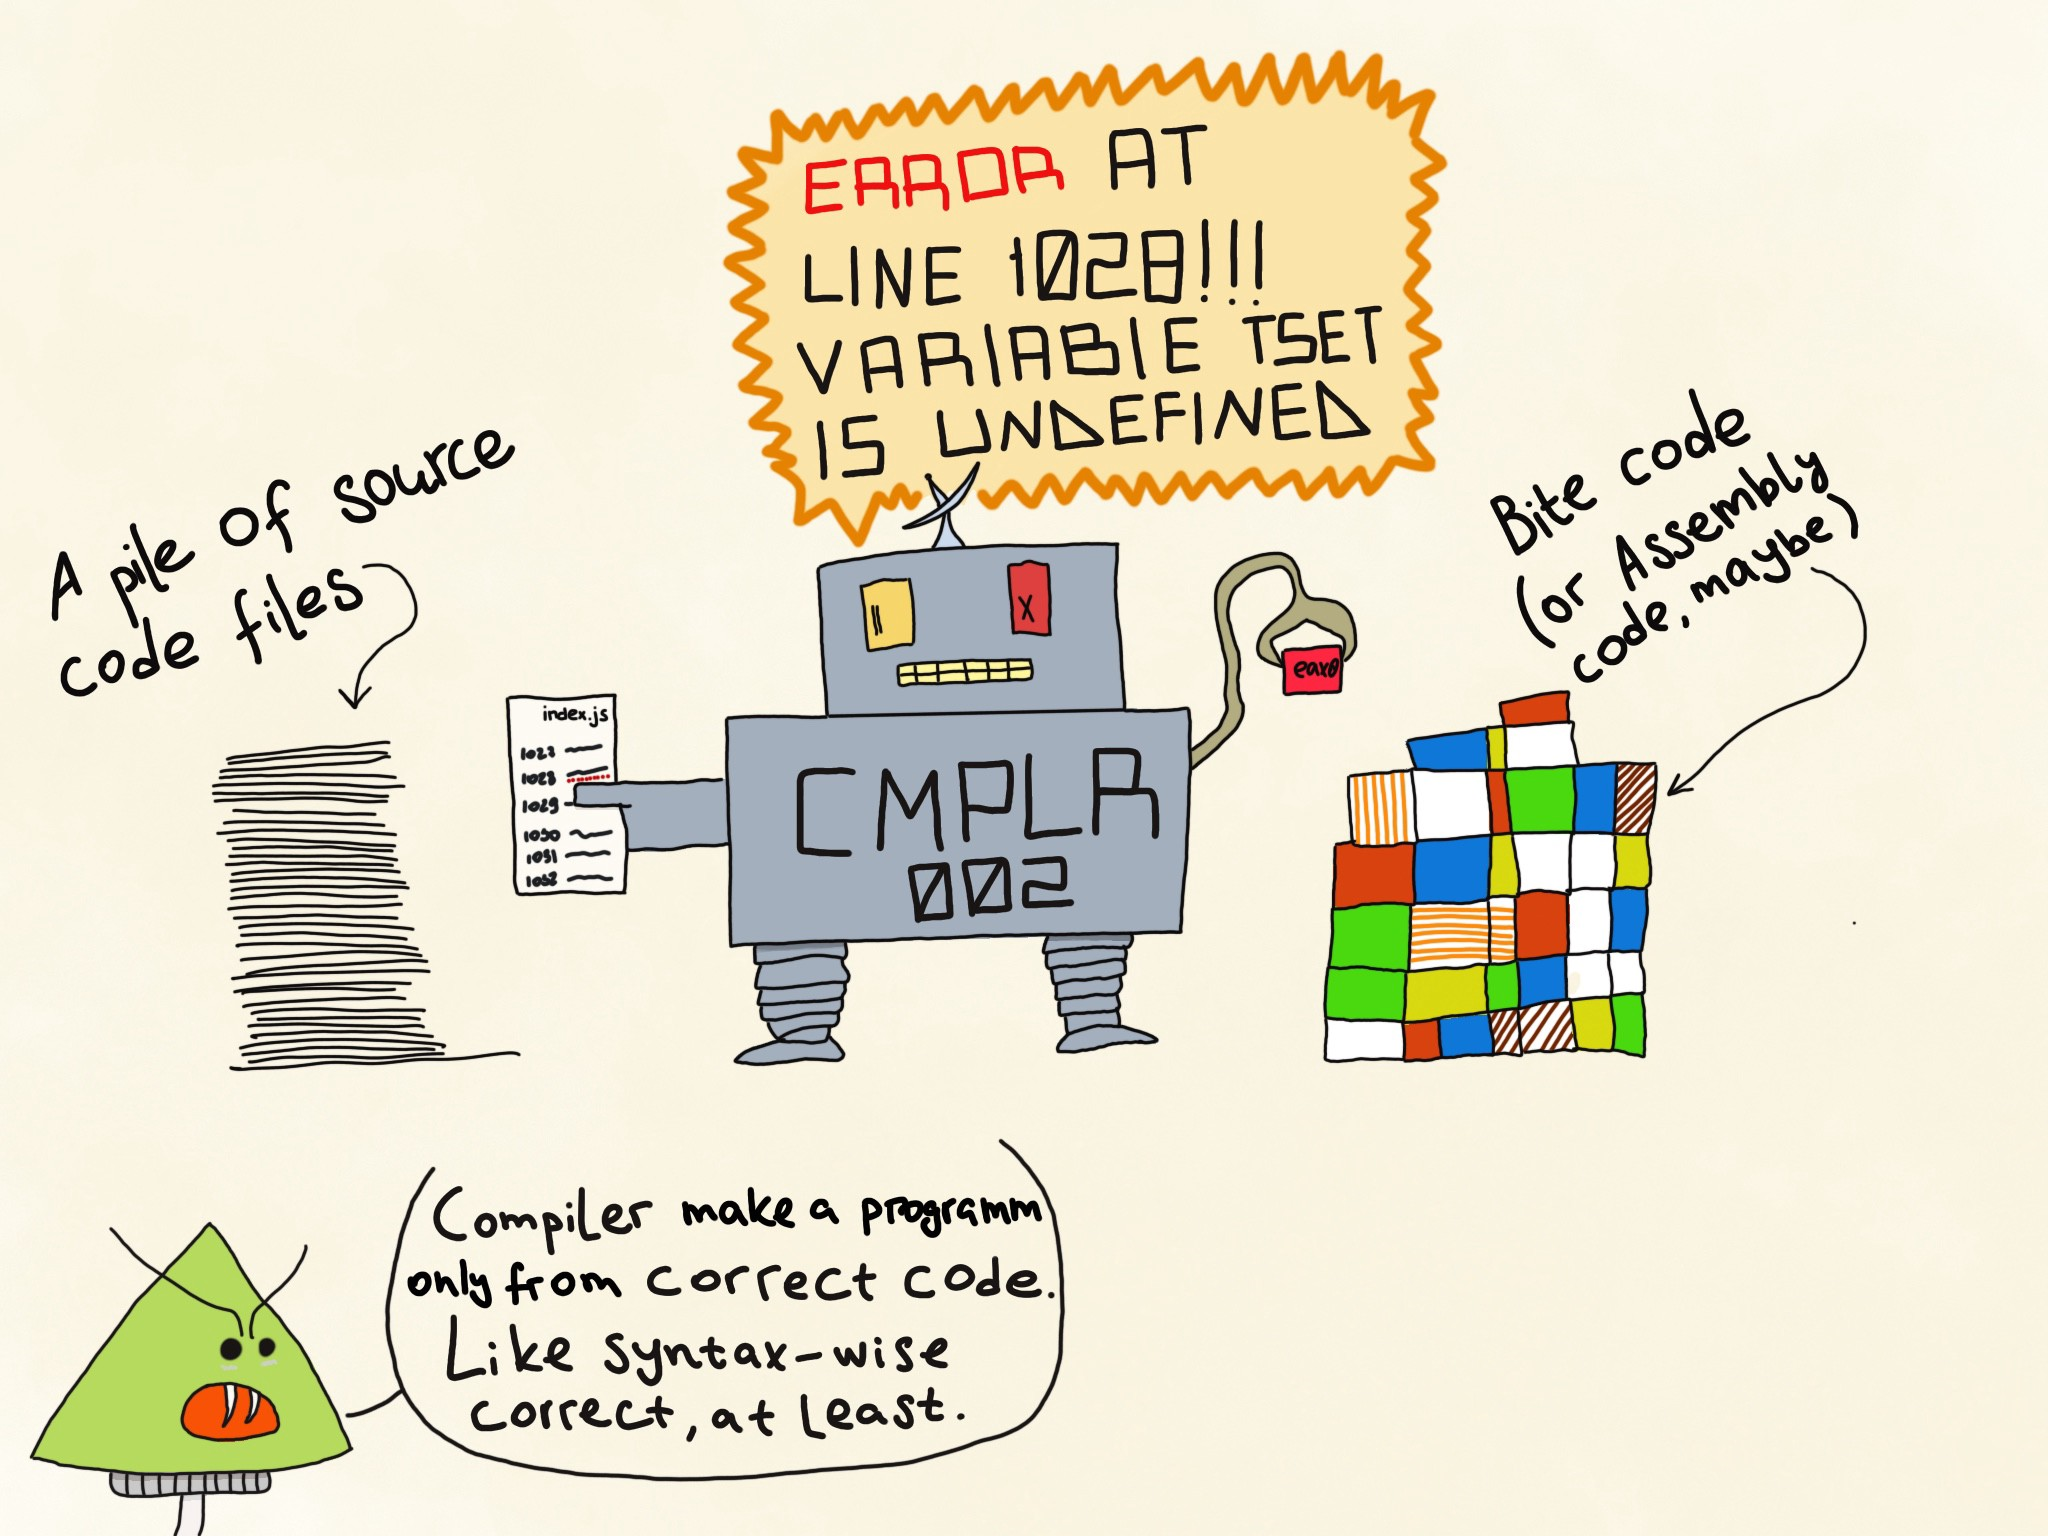 ERROR AT
LINE 1028!!!
VARIABLE TSET
IS UNDEFINED
A pile of source
code files
Bite code
(or Assembly
code, maybe)
index.js
1027
1028
1029
1030
1031
1032
X
CMPLR
002
Compiler make a programm
only from correct code.
Like syntax-wise
correct, at least.